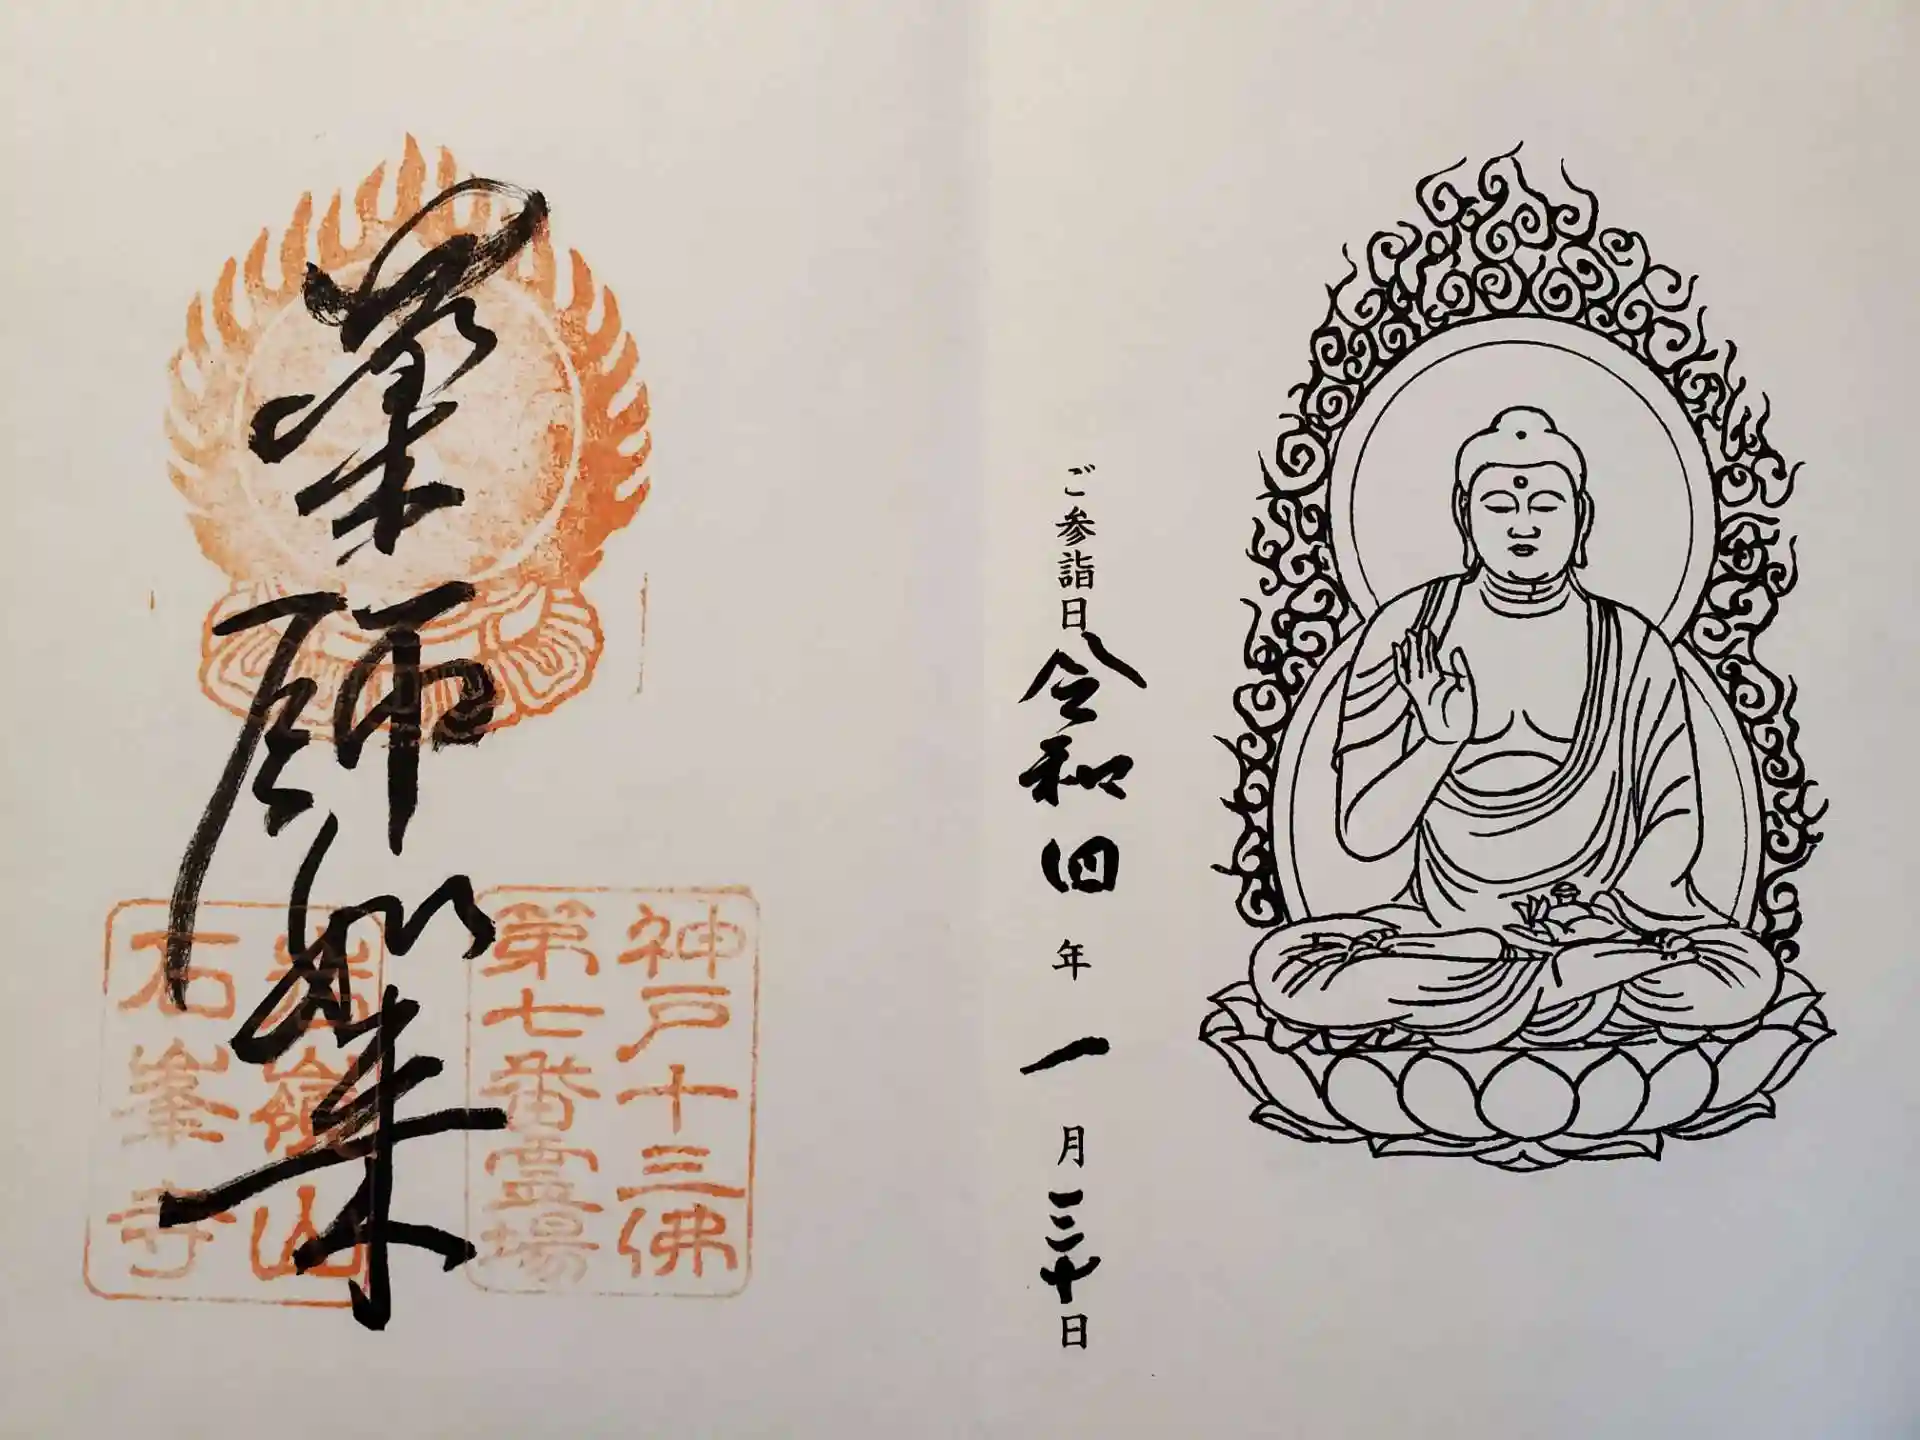 ご参詣日
令和四年一月三十日
薬師如来
神戸十三佛
第七番霊場
岩嶺山
石峯寺